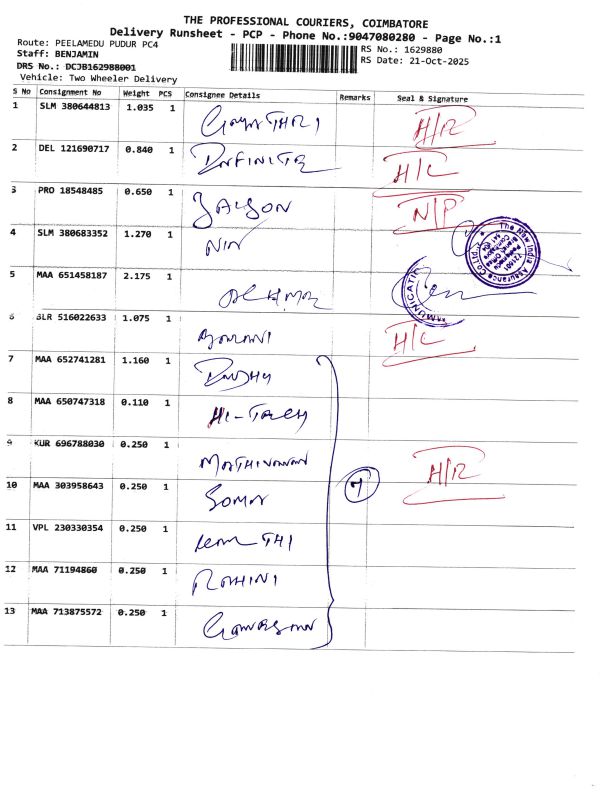 THE PROFESSIONAL COURIERS, COIMBATORE
Delivery Runsheet - PCP - Phone No.:9047080280 - Page No.:1
Route: PEELAMEDU PUDUR PC4
RS No.: 1629880
Staff: BENJAMIN
RS Date: 21-Oct-2025
DRS No.: DCJB162988001
Vehicle: Two Wheeler Delivery
S No Consignment No Weight PCS Consignee Details Remarks Seal & Signature
1 SLM 380644813 1.035 1 H/R
2 DEL 121690717 0.840 1 H/C
3 PRO 18548485 0.650 1 JAYSON N/P
4 SLM 380683352 1.270 1 NIN
The New India Assurance Co. Ltd
5 MAA 651458187 2.175 1
6 BLR 516022633 1.075 1 H/C
7 MAA 652741281 1.160 1
8 MAA 650747318 0.110 1 HI-TECH
9 KUR 696788030 0.250 1 MATHIVANAN H/R
10 MAA 303958643 0.250 1 7
11 VPL 230330354 0.250 1
12 MAA 71194860 0.250 1 ROHINI
13 MAA 713875572 0.250 1